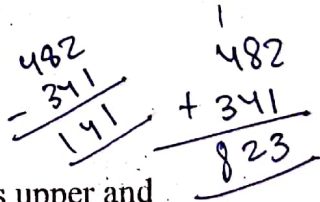 482
- 341
141
1
482
+ 341
823
s upper and